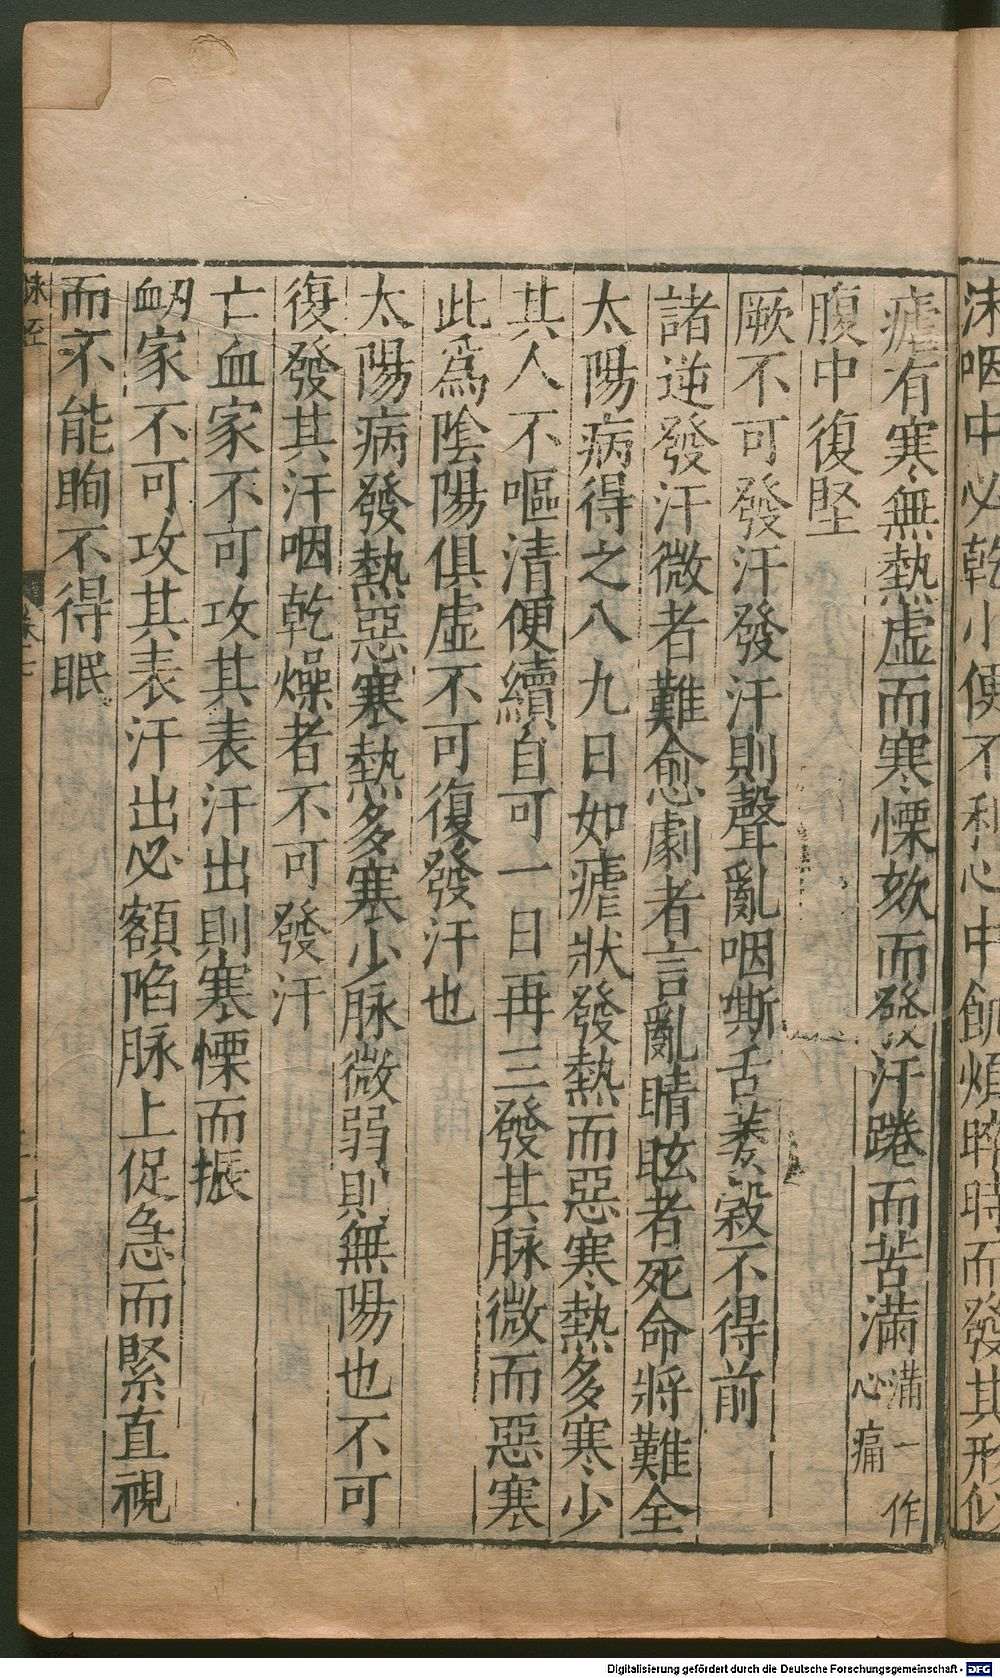 沫咽中必乾小便不利心中飢煩晬時而發其形似
瘧有寒無熱虛而寒慄欬而發汗踡而苦滿滿一作心痛
腹中復堅
厥不可發汗發汗則聲亂咽嘶舌萎穀不得前
諸逆發汗微者難愈劇者言亂睛眩者死命將難全
太陽病得之八九日如瘧狀發熱而惡寒熱多寒少
其人不嘔清便續自可一日再三發其脉微而惡寒
此為陰陽俱虛不可復發汗也
太陽病發熱惡寒熱多寒少脉微弱則無陽也不可
復發其汗咽乾燥者不可發汗
亡血家不可攻其表汗出則寒慄而振
衂家不可攻其表汗出必額陷脉上促急而緊直視
而不能眴不得眠
脉巠
卷七
Digitalisierung gefördert durch die Deutsche Forschungsgemeinschaft - DFG